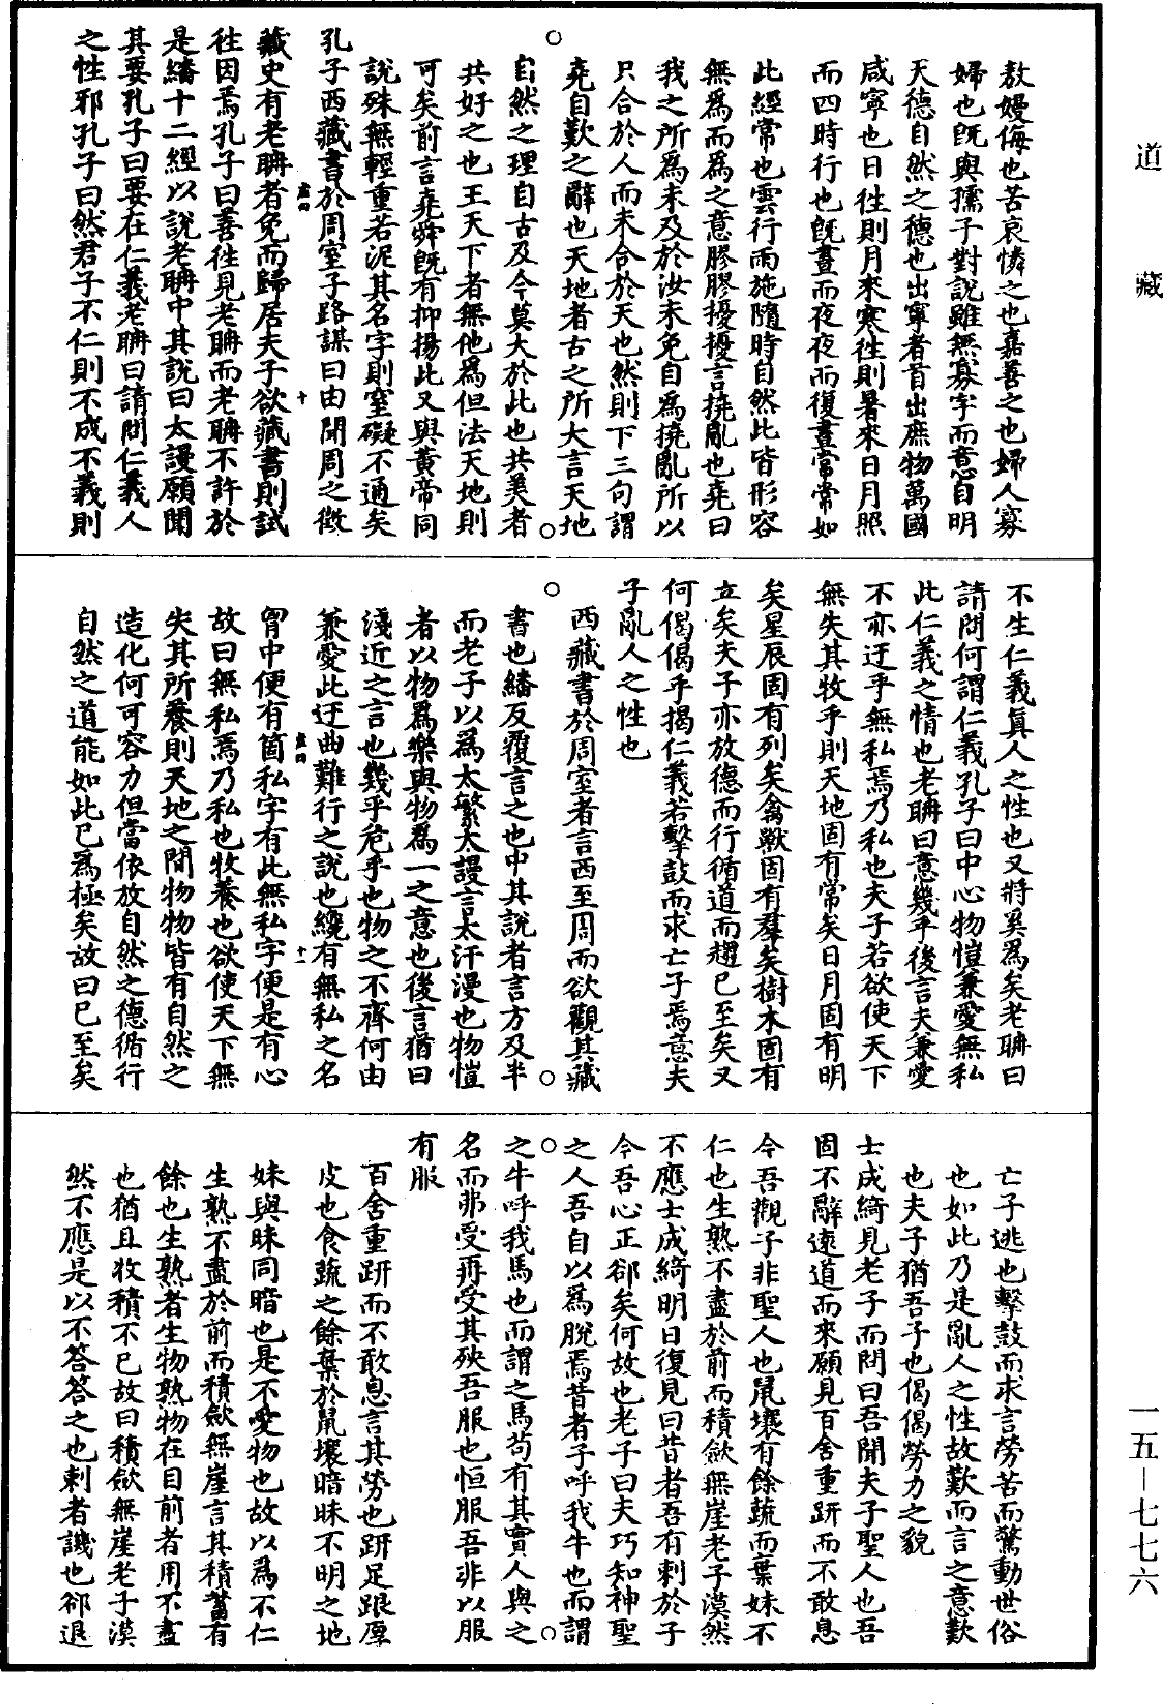 道藏
敖嫚侮也苦哀憐之也嘉善之也婦人寡
婦也旣與孺子對說雖無寡字而意自明
天德自然之德也出寧者首出庶物萬國
咸寧也日徃則月來寒徃則暑來日月照
而四時行也旣晝而夜夜而復晝常常如
此經常也雲行雨施隨時自然此皆形容
無爲而爲之意膠膠擾擾言撓亂也堯曰
我之所爲未及於汝未免自爲撓亂所以
只合於人而未合於天也然則下三句謂
堯自歎之辭也天地者古之所大言天地
自然之理自古及今莫大於此也共美者
共好之也王天下者無他爲但法天地則
可矣前言堯舜旣有抑揚此又與黃帝同
說殊無輕重若泥其名字則窒礙不通矣
孔子西藏書於周室子路謀曰由聞周之徵
藏史有老聃者免而歸居夫子欲藏書則試
徃因焉孔子曰善徃見老聃而老聃不許於
是繙十二經以說老聃中其說曰太謾願聞
其要孔子曰要在仁義老聃曰請問仁義人
之性邪孔子曰然君子不仁則不成不義則
不生仁義眞人之性也又將奚爲矣老聃曰
請問何謂仁義孔子曰中心物愷兼愛無私
此仁義之情也老聃曰意幾乎後言夫兼愛
不亦迂乎無私焉乃私也夫子若欲使天下
無失其牧乎則天地固有常矣日月固有明
矣星辰固有列矣禽獸固有羣矣樹木固有
立矣夫子亦放德而行循道而趨已至矣又
何偈偈乎揭仁義若擊鼓而求亡子焉意夫
子亂人之性也
西藏書於周室者言西至周而欲觀其藏
書也繙反覆言之也中其說者言方及半
而老子以爲太繁太謾言太汗漫也物愷
者以物爲樂與物爲一之意也後言猶曰
淺近之言也幾乎危乎也物之不齊何由
兼愛此迂曲難行之說也纔有無私之名
胷中便有箇私字有此無私字便是有心
故曰無私焉乃私也牧養也欲使天下無
失其所養則天地之間物物皆有自然之
造化何可容力但當依放自然之德循行
自然之道能如此已爲極矣故曰已至矣
亡子逃也擊鼓而求言勞苦而驚動世俗
也如此乃是亂人之性故歎而言之意歎
也夫子猶吾子也偈偈勞力之貌
士成綺見老子而問曰吾聞夫子聖人也吾
固不辭遠道而來願見百舍重趼而不敢息
今吾觀子非聖人也鼠壤有餘蔬而棄妹不
仁也生熟不盡於前而積歛無崖老子漠然
不應士成綺明日復見曰昔者吾有刺於子
今吾心正郤矣何故也老子曰夫巧知神聖
之人吾自以爲脫焉昔者子呼我牛也而謂
之牛呼我馬也而謂之馬苟有其實人與之
名而弗受再受其殃吾服也恒服吾非以服
有服
百舍重趼而不敢息言其勞也趼足跟厚
皮也食蔬之餘棄於鼠壤暗昧不明之地
妹與昧同暗也是不愛物也故以爲不仁
生熟不盡於前而積歛無崖言其積蓄有
餘也生熟者生物熟物在目前者用不盡
也猶且收積不已故曰積歛無崖老子漠
然不應是以不答答之也刺者譏也郤退
一五—七七六